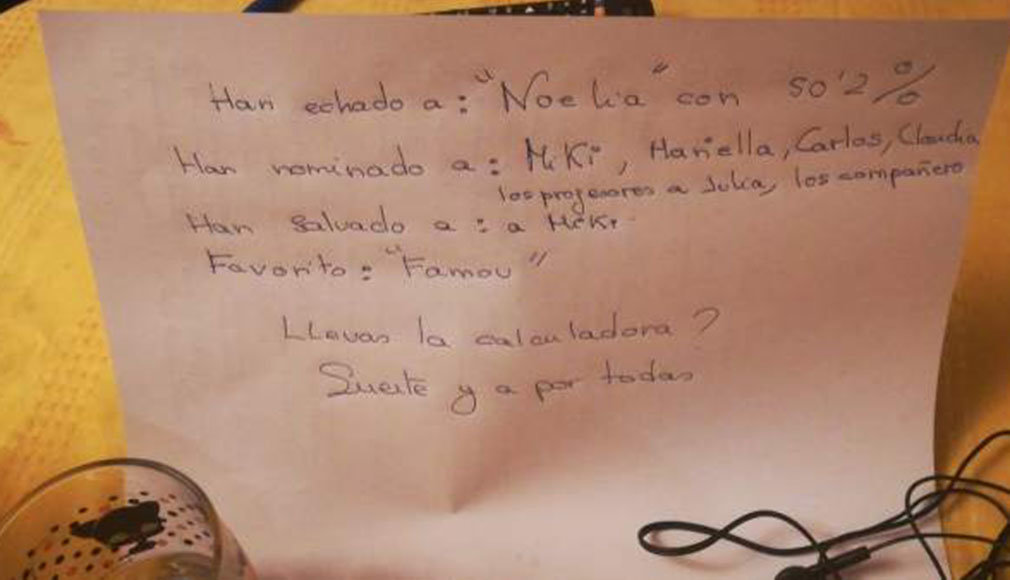 Han echado a: "Noelia" con 50'2%
Han nominado a: Miki, Mariella, Carlos, Claudia
los profesores a Julia, los compañero
Han salvado a: a Miki
Favorito: "Famou"
LLevas la calculadora?
Suerte y a por todas